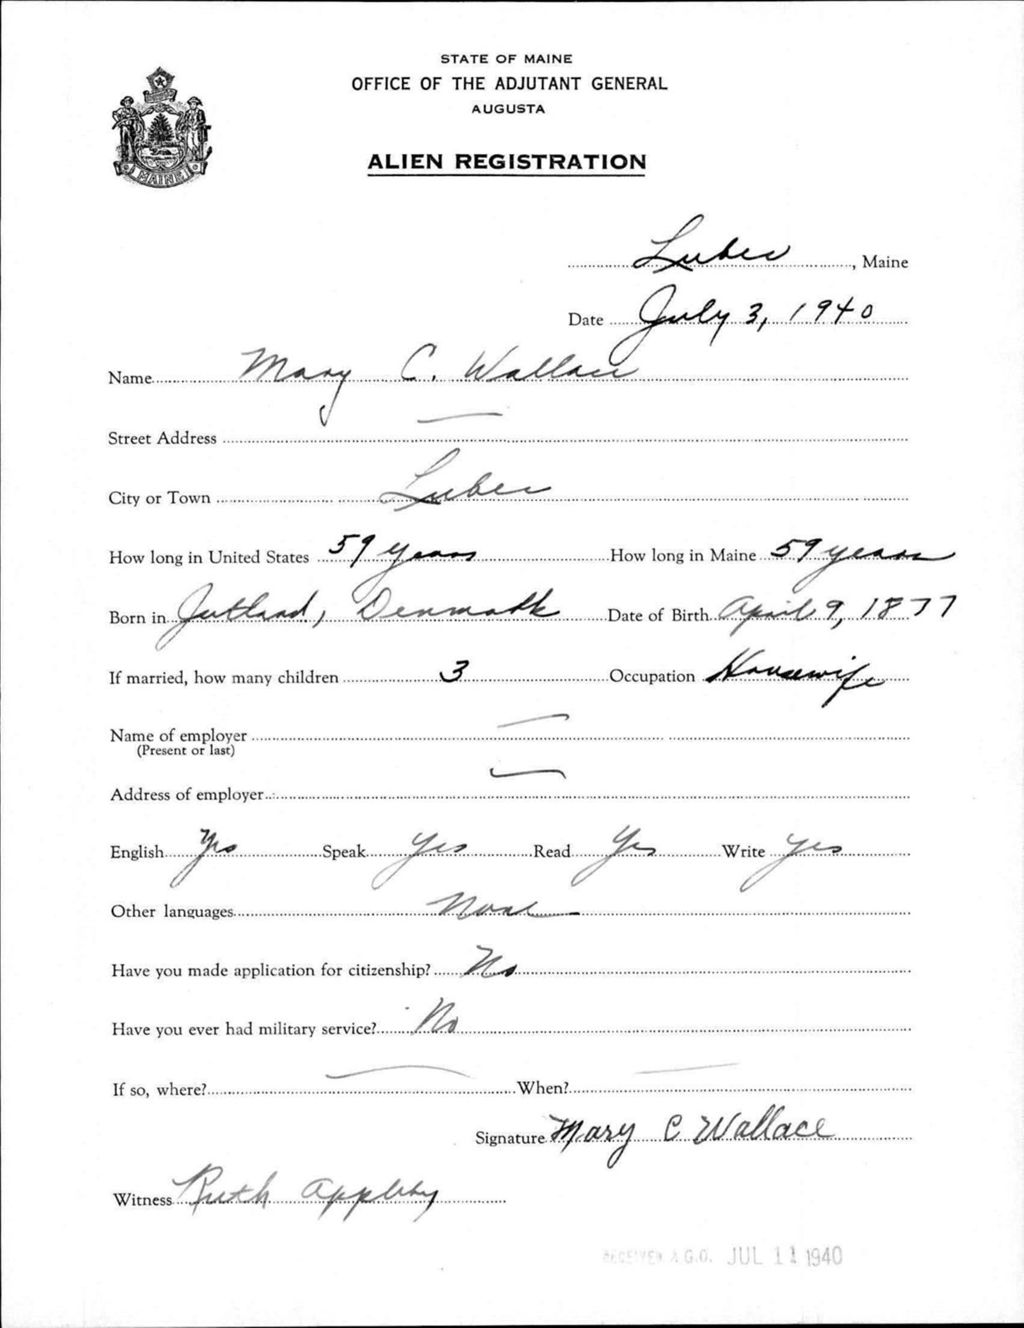 STATE OF MAINE
OFFICE OF THE ADJUTANT GENERAL
AUGUSTA
ALIEN REGISTRATION
MAINE
Lubec, Maine
Date July 3, 1940
Name Mary C. Wallace
Street Address —
City or Town Lubec
How long in United States 59 years How long in Maine 59 years
Born in Jutland, Denmark Date of Birth April 9, 1877
If married, how many children 3 Occupation Housewife
Name of employer —
(Present or last)
Address of employer —
English Yes Speak Yes Read Yes Write Yes
Other languages None
Have you made application for citizenship? No
Have you ever had military service? No
If so, where? — When? —
Signature Mary C Wallace
Witness Ruth Appleby
RECEIVED A.G.O. JUL 11 1940